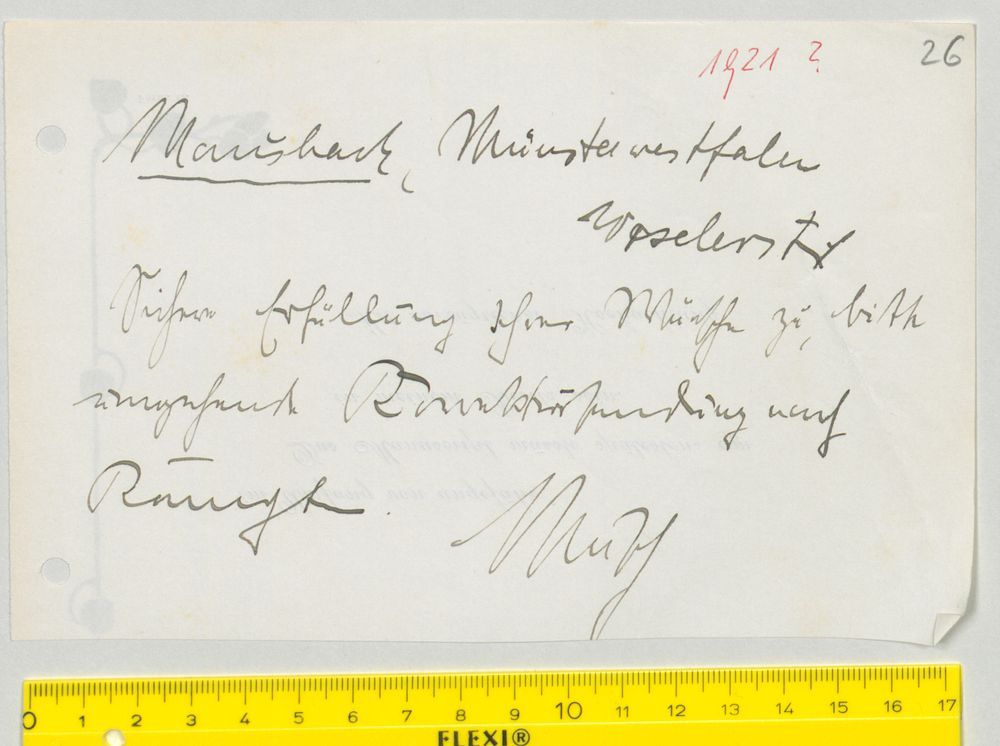 1921 ?
26
Mausbach, Münsterwestfalen
Weselerstr
Sichere Erfüllung Ihrer Wünsche zu, bitte
umgehende Korrektursendung nach
Muth
0 1 2 3 4 5 6 7 8 9 10 11 12 13 14 15 16 17
FLEXI®